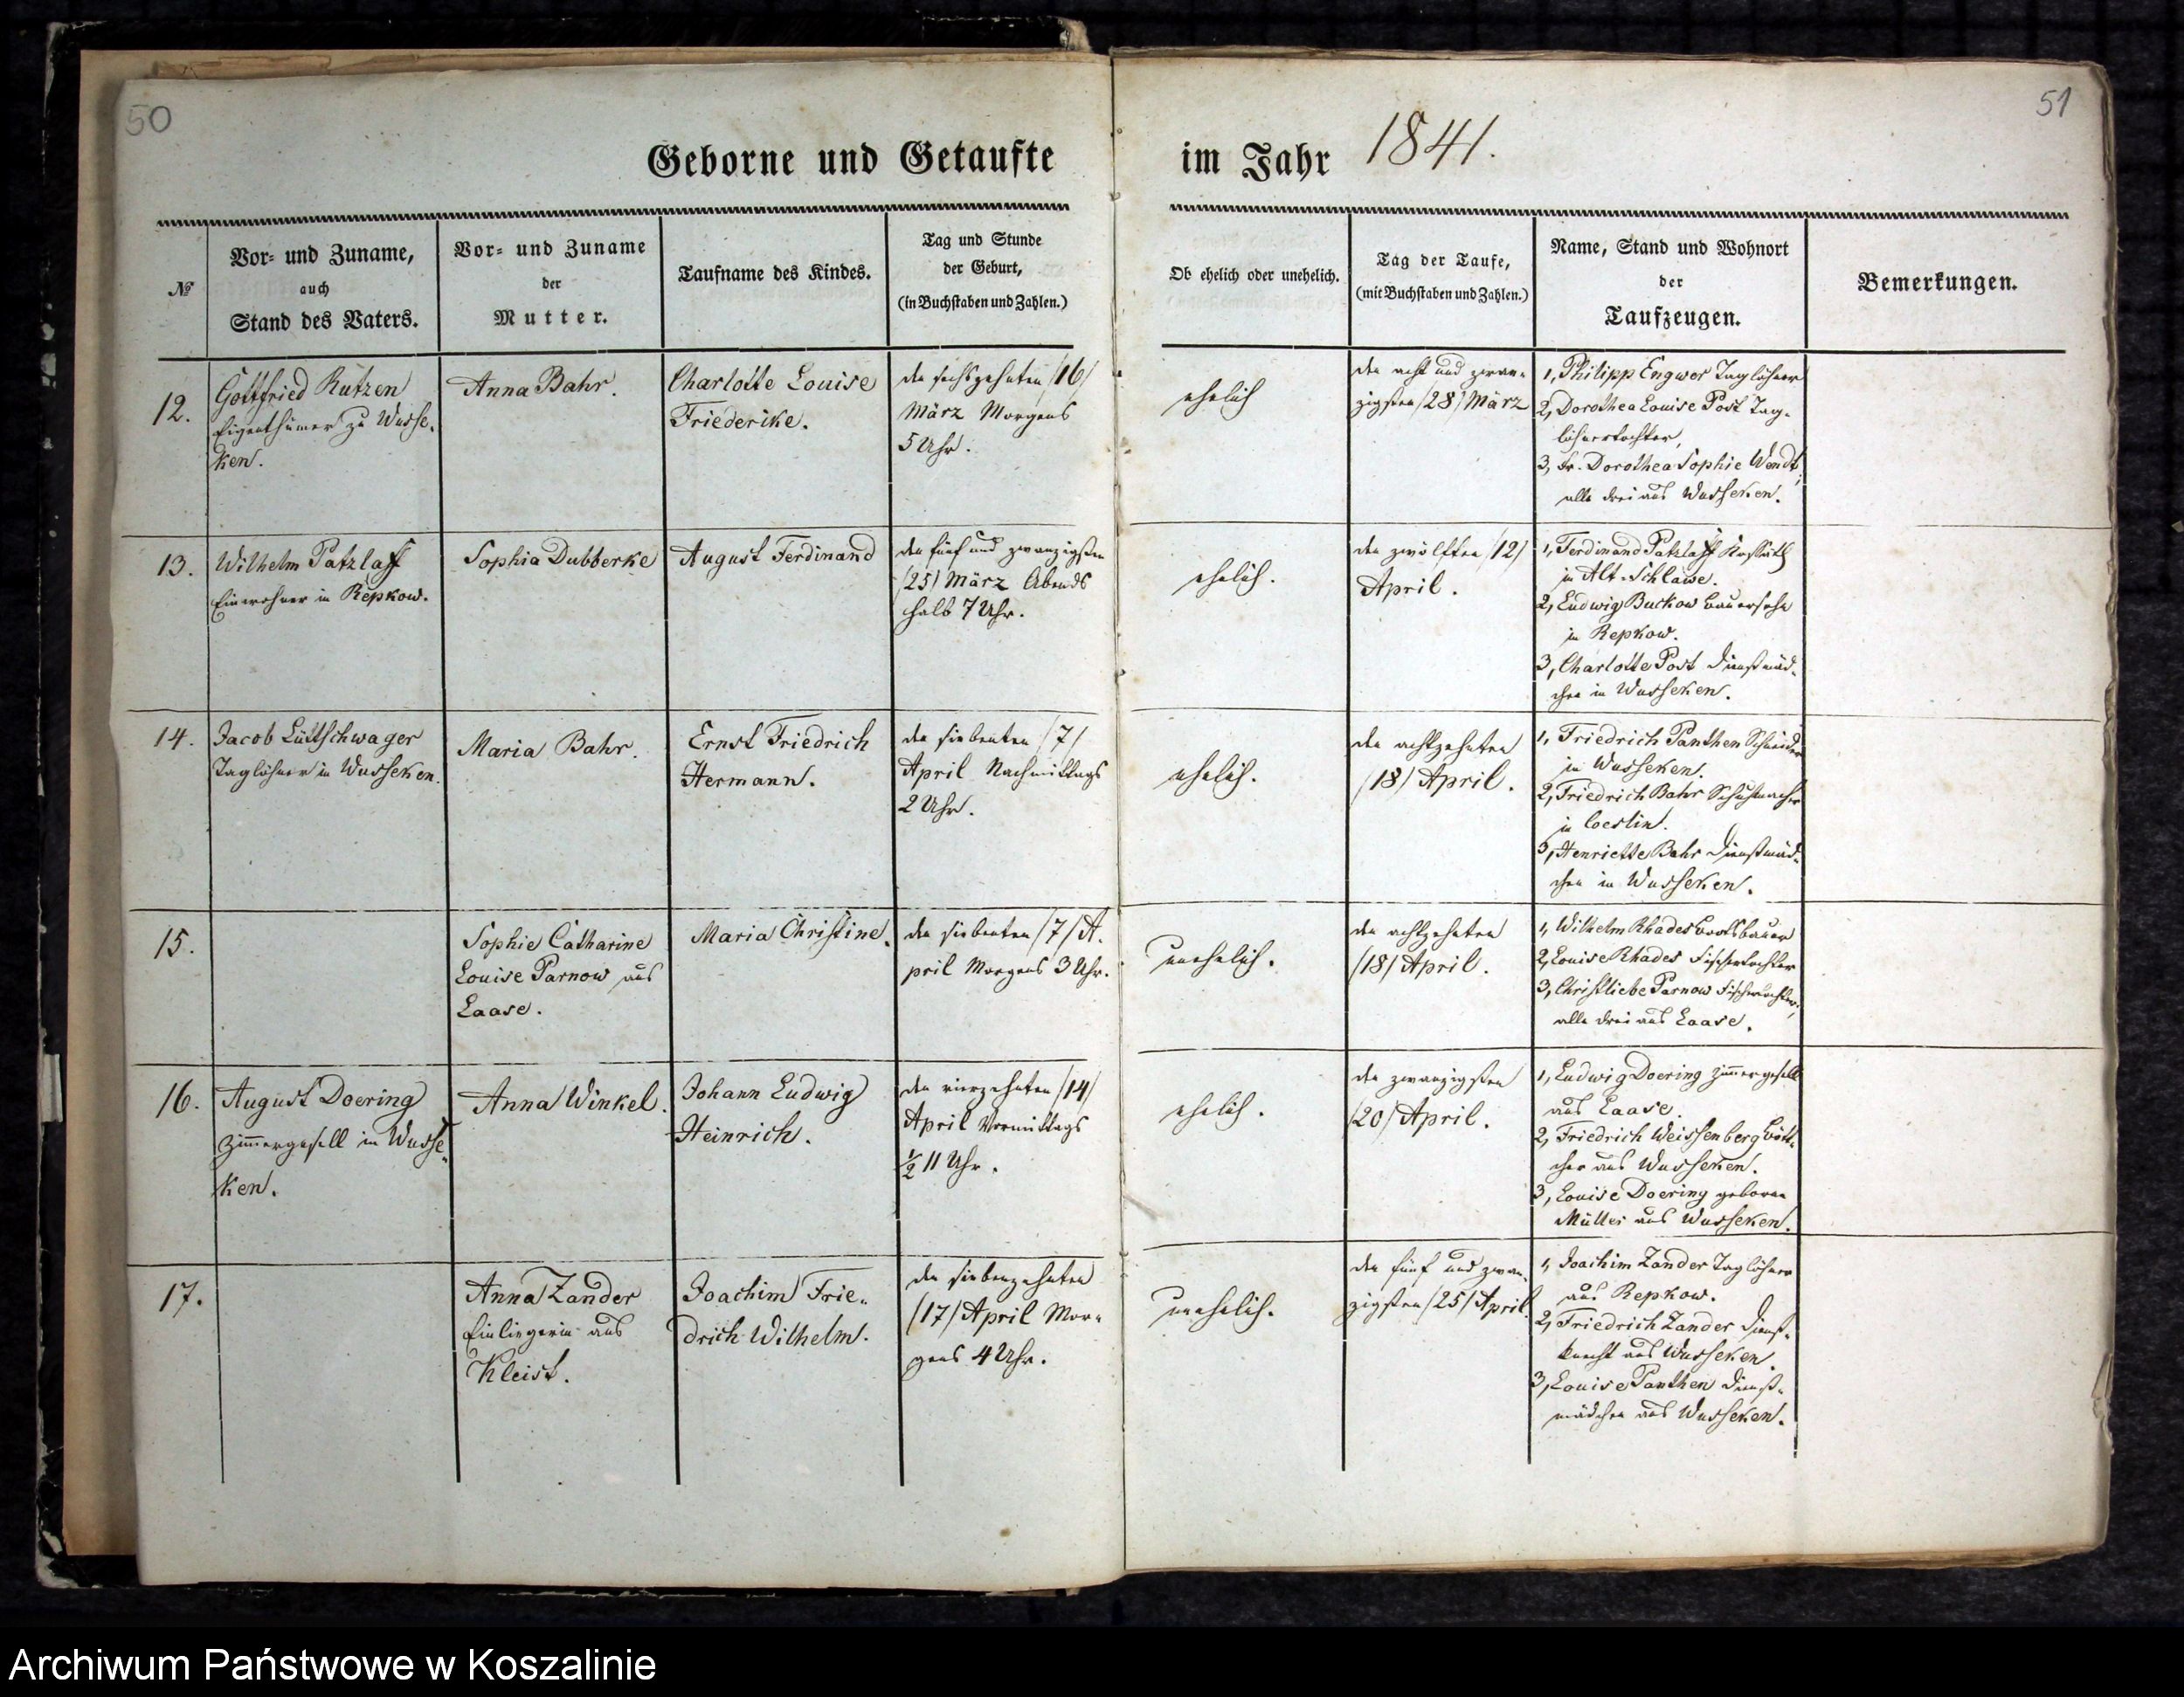 50
Geborne und Getaufte
№
Vor- und Zuname,
auch
Stand des Vaters.
Vor- und Zuname
der
Mutter.
Taufname des Kindes.
Tag und Stunde
der Geburt,
(in Buchstaben und Zahlen.)
12.
Gottfried Rutzen
Eigenthümer zu Wusse-
ken.
Anna Bahr.
Charlotte Louise
Friederike.
den sechszehnten /16/
März Morgens
5 Uhr.
13.
Wilhelm Patzlaff
Einwohner in Repkow.
Sophia Dubberke
August Ferdinand
den fünf und zwanzigsten
/25/ März Abends
halb 7 Uhr.
14.
Jacob Lüttschwager
Taglöhner in Wusseken.
Maria Bahr.
Ernst Friedrich
Hermann.
den siebenten /7/
April Nachmittags
2 Uhr.
15.
Sophie Catharine
Louise Parnow aus
Laase.
Maria Christine.
den siebenten /7/ A-
pril Morgens 3 Uhr.
16.
August Doering
Zimmergesell in Wusse-
ken.
Anna Winkel.
Johann Ludwig
Heinrich.
den vierzehnten /14/
April Vormittags
½ 11 Uhr.
17.
Anna Zander
Einliegerin aus
Kleist.
Joachim Frie-
drich Wilhelm.
den siebenzehnten
/17/ April Mor-
gens 4 Uhr.
51
im Jahr 1841.
Ob ehelich oder unehelich.
Tag der Taufe,
(mit Buchstaben und Zahlen.)
Name, Stand und Wohnort
der
Taufzeugen.
Bemerkungen.
ehelich
den acht und zwan-
zigsten /28/ März
1, Philipp Engwer Taglöhner
2, Dorothea Louise Post Tag-
löhnertochter,
3, Fr. Dorothea Sophie Wendt,
alle drei aus Wusseken.
ehelich.
den zwölften /12/
April.
1, Ferdinand Patzlaff Kossäth
in Alt-Schlawe.
2, Ludwig Buckow Bauersohn
in Repkow.
3, Charlotte Post Dienstmäd-
chen in Wusseken.
ehelich.
den achtzehnten
/18/ April.
1, Friedrich Panthen Schneider
in Wusseken.
2, Friedrich Bahr Schuhmacher
in Coeslin.
3, Henriette Bahr Dienstmäd-
chen in Wusseken.
unehelich.
den achtzehnten
/18/ April.
1, Wilhelm Rhades Bootsbauer
2, Louise Rhades Fischertochter
3, Christliebe Parnow Fischertochter,
alle drei aus Laase.
ehelich.
den zwanzigsten
/20/ April.
1, Ludwig Doering Zimmergesell
aus Laase.
2, Friedrich Weissenberg Bött-
cher aus Wusseken.
3, Louise Doering geborne
Müller aus Wusseken.
unehelich.
den fünf und zwan-
zigsten /25/ April.
1, Joachim Zander Taglöhner
aus Repkow.
2, Friedrich Zander Dienst-
knecht aus Wusseken.
3, Louise Panthen Dienst-
mädchen aus Wusseken.
Archiwum Państwowe w Koszalinie